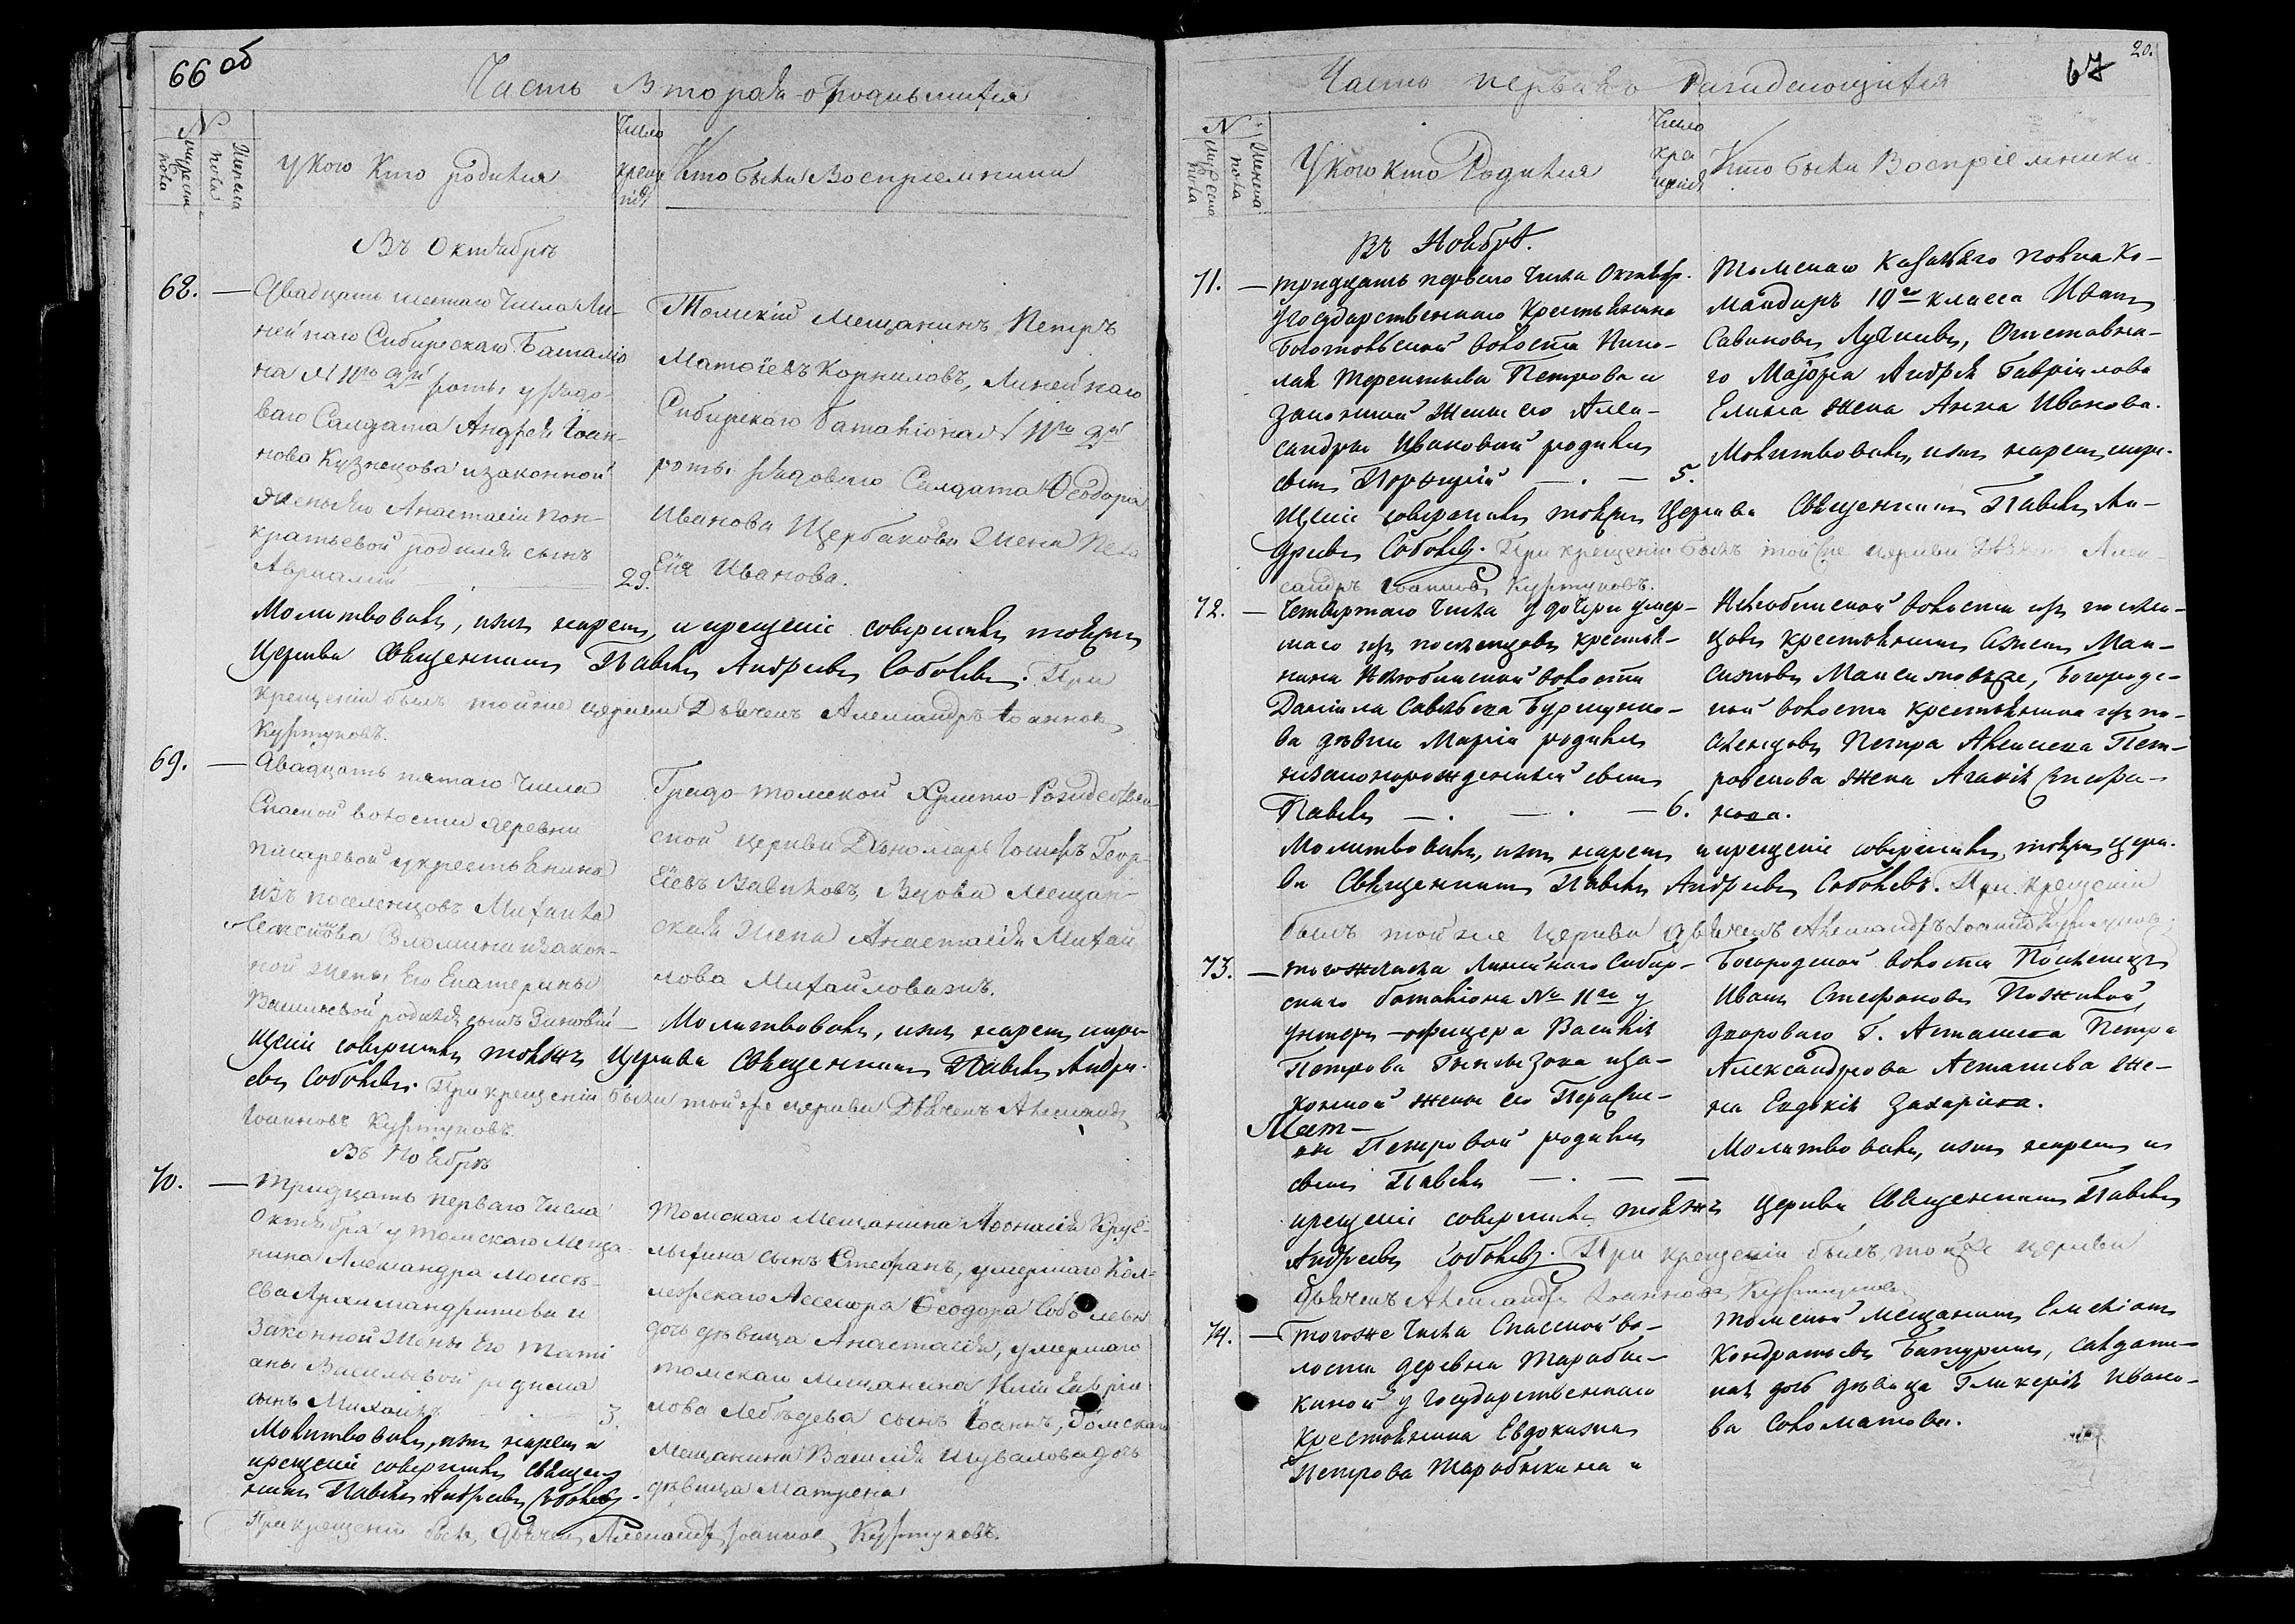 66 об
Часть Вторая о Родившихся
№
мужеска пола
Женска пола
У Кого Кто родился
Число крещенія
Кто были Воспріемники
Въ Октябрѣ
68. — Двадцать шестаго Числа Ли-
нейнаго Сибирскаго Баталіо
на № 11го 2й роты у рядо-
ваго Салдата Андрея Іоан-
нова Кузнецова и законной
жены его Анастасіи Пон-
кратьевой родился сынъ
Авраамій — 29.
Томскій Мещанинъ Петръ
Матѳіевъ Корниловъ, Линейнаго
Сибирскаго баталіона № 11го 2й
роты рядоваго Салдата Ѳеодора
Иванова Щербакова Жена Пела
Ѣія Иванова.
Молитвовалъ, имя нарекъ, и крещеніе совершилъ тойже
Церкви Священникъ Павелъ Андреевъ Соболевъ. При
крещеніи былъ тойже церкви Дьячекъ Александръ Іоанновъ
Куртуковъ.
69. — Двадцать пятаго Числа
Спаской волости деревни
Писаревой у крестьянина
изъ поселенцовъ Михаила
Семенова Соломина и закон-
ной жены Его Екатерины
Васильевой родился сынъ Зиновій —
Градо-томской Христо-Рождествен-
ской церкви Дьномарь Іосифъ Геор-
Ѣіевъ Вавиловъ, Вдова мещан-
ская Жена Анастасія Михай
лова Михайловыхъ.
Молитвовалъ, имя нарекъ и кре-
щеніе совершилъ тойже Церкви Священникъ Павелъ Андре-
евъ Соболевъ. При крещеніи былъ тойже церкви Дьячекъ Александръ
Іоанновъ Куртуковъ.
Въ Ноябрѣ
70. — Тридцать перваго Числа
Октября у томскаго Меща-
нина Александра Моисѣ-
ева Архимандритова и
Законной Жены Его Тати
аны Васильевой родился
сынъ Михаилъ — 3.
Томскаго Мещанина Аѳонасія
сынъ Стефанъ, умершаго Кол-
лежскаго Асессора Ѳеодора Соболева
дочь дѣвица Анастасія, умершаго
томскаго Мещанина Иліи Гаврии
лова Лебѣдева сынъ Іоаннъ, Томскаго
Мещанина Василія Шувалова дочь
дѣвица Матрена
Молитвовалъ, имя нарекъ и
крещеніе совершилъ Священ
никъ Павелъ Андреевъ Соболевъ.
При крещеніи былъ Дьячекъ Александръ Іоанновъ Куртуковъ.
67
20.
Часть перьвая о Раждающихся
№
мужеска пола
Женска пола
У кого кто Родился
Число крещенія
Кто были Воспріемники.
Въ Ноябрѣ.
71. — тридцать перваго Числа Октября
у Государственнаго Крестьянина
Боготольской Волости Нико-
лая Терентьева Петрова и
законной Жены его Алек-
сандры Ивановой родился
сынъ Порфирій — . — 5.
Томскаго Казачьяго полка Ко-
мандиръ 10го класса Иванъ
Савиновъ Лучшевъ, Отставна-
го Маіора Андрея Гавріилова
Елина жена Анна Иванова.
Молитвовалъ, имя нарекъ и кре-
щеніе совершилъ тойже Церкви Священникъ Павелъ Ан-
дреевъ Соболевъ. При крещеніи былъ тойже церкви Дьячекъ Алек-
сандръ Іоанновъ Куртуковъ.
72. — Четвертаго Числа у дочери умер-
шаго изъ поселенцовъ крестья-
нина Нелюбинской волости
Даніила Савельева
дѣвки Маріи родился
незаконорожденный сынъ
Павелъ — . — . — 6.
Нелюбинской волости изъ поселен-
цовъ крестьянинъ Семенъ Мак-
симовъ, Богородс-
кой волости крестьянина изъ по-
селенцовъ Петра Алексеева Пет-
ровскова жена Агапія Спефа-
нова.
Молитвовалъ, имя нарекъ и крещеніе совершилъ, тойже церк-
ви Священникъ Павелъ Андреевъ Соболевъ. При крещеніи
былъ тойже Церкви Дьячекъ Александръ Іоанновъ Куртуковъ.
73. — тогожъ числа Линейнаго Сибир-
скаго баталіона № 11го у
унтеръ-офицера Василія
Петрова и за-
конной жены его
Петровой родился
сынъ Павелъ — . — —
Богородской волости Поселенецъ
Иванъ Стефановъ Поживой,
двороваго Г. Асташева Петра
Александрова Асташева же-
на Евдокія Захарова.
Молитвовалъ, имя нарекъ и
крещеніе совершилъ тойже Церкви Священникъ Павелъ
Андреевъ Соболевъ. При крещеніи былъ тойже церкви
Дьячекъ Александръ Іоанновъ Куртуковъ
74. — Тогоже Числа Спасской во-
лости деревни Тараба-
киной у Государственнаго
Крестьянина Евдокима
Петрова Тарабыкина и
томской мещанинъ Емеліанъ
Кондратьевъ Батуринъ, салдатс-
кая дочь дѣвица Гликерія Ивано-
ва Соломатова.